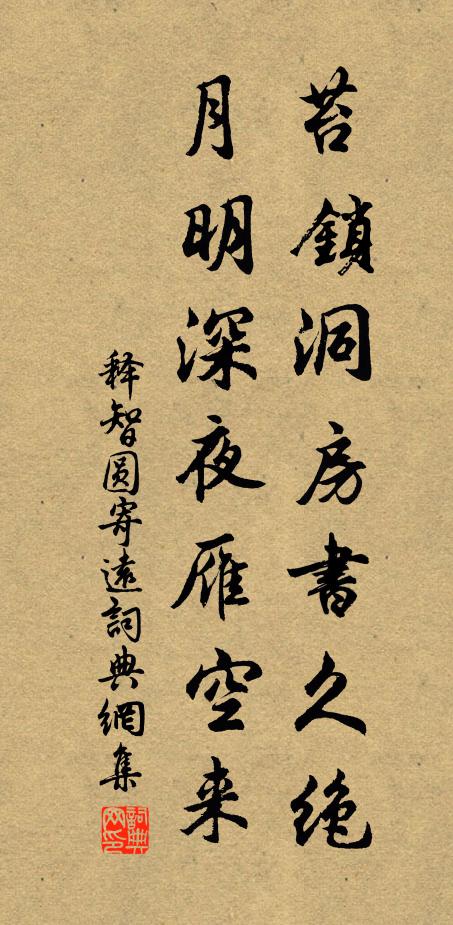 苔鎖洞房書久绝
月明深夜雁空来
释智圆寄遠詞典網集
詞典网印